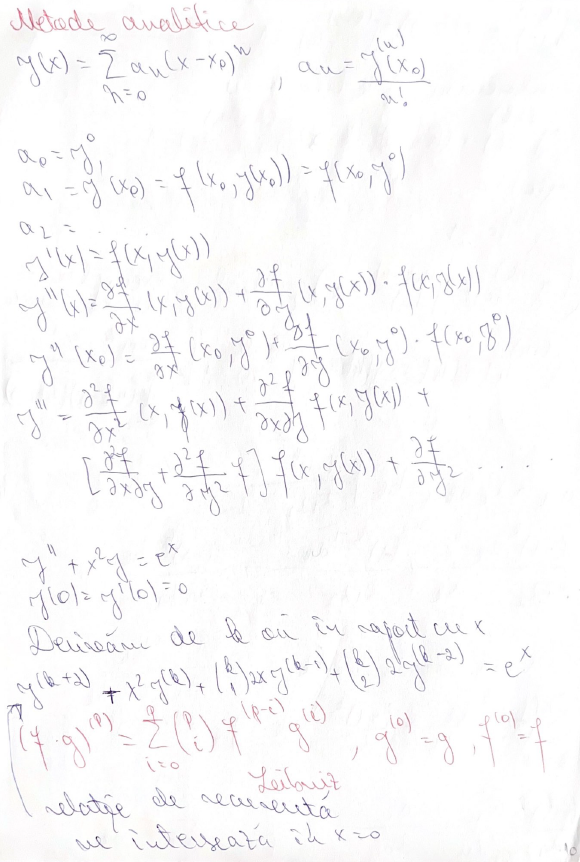 Metode analitice
y(x) = ∑_{n=0}^{∞} a_n (x-x_0)^n , a_n = y^{(n)}(x_0) / n!
a_0 = y^0,
a_1 = y'(x_0) = f(x_0, y(x_0)) = f(x_0, y^0)
a_2 = . . . . .
y'(x) = f(x, y(x))
y''(x) = ∂f/∂x (x, y(x)) + ∂f/∂y (x, y(x)) · f(x, y(x))
y''(x_0) = ∂f/∂x (x_0, y^0) + ∂f/∂y (x_0, y^0) · f(x_0, y^0)
y''' = ∂²f/∂x² (x, y(x)) + ∂²f/∂x∂y f(x, y(x)) +
[∂²f/∂x∂y + ∂²f/∂y² f] f(x, y(x)) + ∂f/∂y² . . . . .
y'' + x²y = e^x
y(0) = y'(0) = 0
Derivăm de k ori în raport cu x
y^{(k+2)} + x² y^{(k)} + (k 1) 2x y^{(k-1)} + (k 2) 2 y^{(k-2)} = e^x
(f·g)^{(p)} = ∑_{i=0}^{p} (p i) f^{(p-i)} g^{(i)} , g^{(0)} = g , f^{(0)} = f
Leibniz
relație de recurență
ne interesează în x=0
10